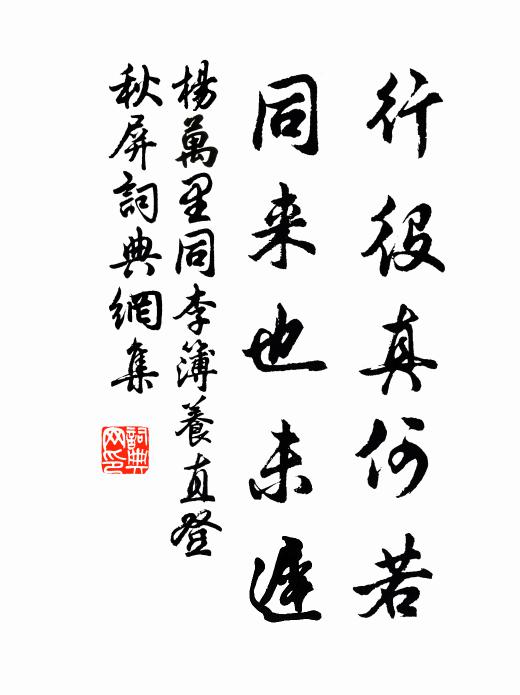 行役真何若
同来也未遲
楊萬里同李簿養直登
秋屏詞典網集
詞典
网印